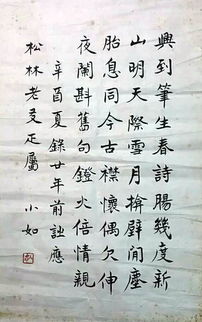 興到筆生春詩腸幾度新
山明天際雪月揜壁間塵
胎息同今古襟懷偶欠伸
夜闌斟舊句鐙火倍情親
辛酉夏錄廿年前應
松林老友正屬 小如